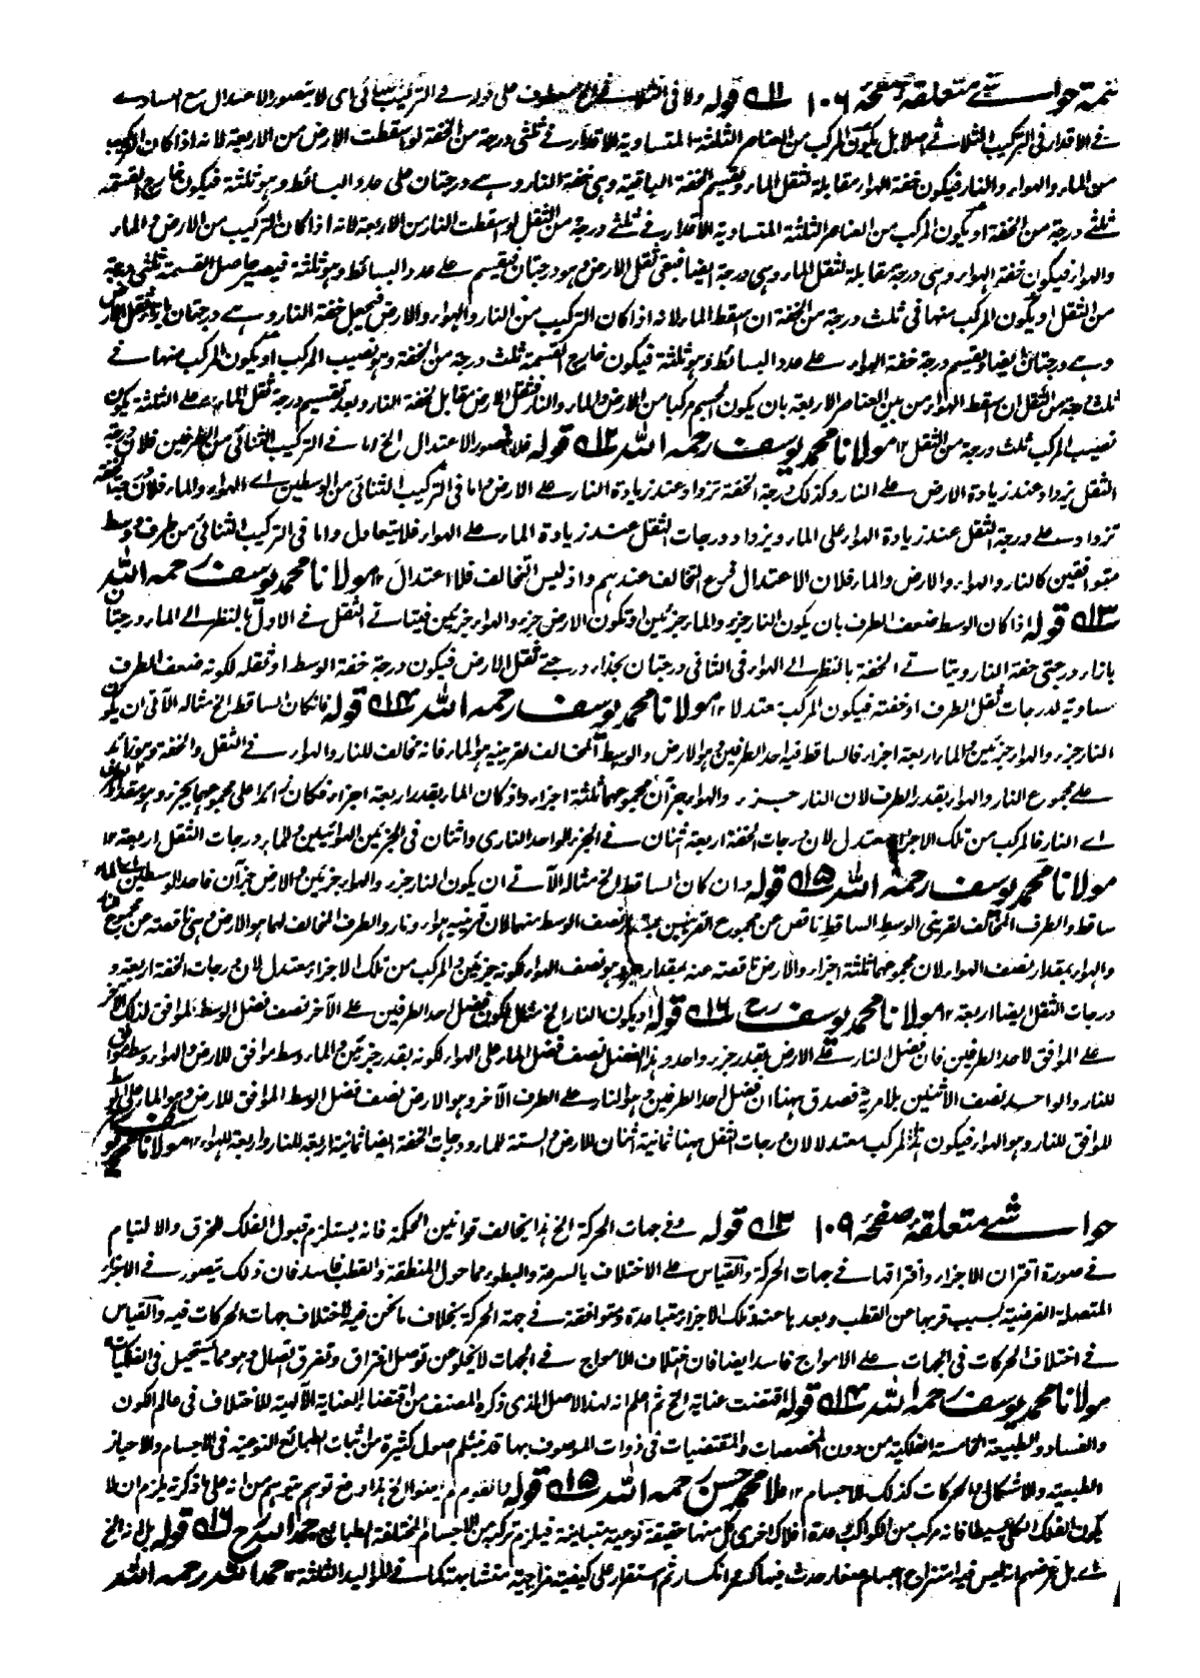 تتمة حواشی متعلقہ صفحہ ۱۰۶ ۵۱۱ قولہ ولا فی الثلاثی الخ معطوف علی قولہ فی الترکیب الثنائی ای لا یتصور الاعتدال مع المساواة
فی الاقدار فی الترکیب الثلاثی اصلا بل یکون المرکب من العناصر الثلثة المتساویة الاقدار فی ثلثی درجة من الخفة لو سقطت الارض من الاربعة لانہ اذا کان الترکیب
من الماء والهواء والنار فیکون خفة الهواء مقابلة لثقل الماء وتقسیم الخفة الباقیة وهی خفة النار وهی درجتان علی عدد البسائط وهو ثلثة فیکون خارج القسمة
ثلثی درجة من الخفة او یکون المرکب من العناصر الثلثة المتساویة الاقدار فی ثلثی درجة من الثقل لو سقطت النار من الاربعة لانہ اذا کان الترکیب من الارض والماء
والهواء فیکون خفة الهواء وهی درجة مقابلة لثقل الماء وهی درجة ایضا فبقی ثقل الارض وهو درجتان یقسم علی عدد البسائط وهو ثلثة فیصیر حاصل القسمة ثلثی درجة
من الثقل او یکون المرکب منها فی ثلث درجة من الخفة ان سقط الماء لانہ اذا کان الترکیب من النار والهواء والارض فیجعل خفة النار وهی درجتان بازاء ثقل الارض
وهی درجتان ایضا ویقسم درجة خفة الهواء علی عدد البسائط وهو ثلثة فیکون خارج القسمة ثلث درجة من الخفة وهو نصیب المرکب او یکون المرکب منها فی
ثلث درجة من الثقل ان سقط الهواء من بین العناصر الاربعة بان یکون الجسم مرکبا من الارض والماء والنار فثقل الارض مقابل لخفة النار وبعد تقسیم درجة ثقل الماء علی الثلثة یکون
نصیب المرکب ثلث درجة من الثقل ۱۲ مولانا محمد یوسف رحمہ اللہ ۵۱۲ قولہ فلا یتصور الاعتدال الخ اما فی الترکیب الثنائی من الطرفین فلان درجة
الثقل یزداد عند زیادة الارض علی النار وکذلک درجة الخفة تزداد عند زیادة النار علی الارض واما فی الترکیب الثنائی من الوسطین ای الهواء والماء فلان درجة الخفة
تزداد علی درجة الثقل عند زیادة الهواء علی الماء ویزداد درجات الثقل عند زیادة الماء علی الهواء فلا یتعادل واما فی الترکیب الثنائی من طرف ووسط
متوافقین کالنار والهواء والارض والماء فلان الاعتدال فرع التخالف عندهم واذ لیس التخالف فلا اعتدال ۱۲ مولانا محمد یوسف رحمہ اللہ
۵۱۳ قولہ اذا کان الوسط ضعف الطرف بان یکون النار جزء والماء جزئین او یکون الارض جزء والهواء جزئین فیتاتی الثقل فی الاول بالنظر الی الماء درجتا
بازاء درجتی خفة النار ویتاتی الخفة بالنظر الی الهواء فی الثانی درجتان بحذاء درجتی ثقل الارض فیکون درجة خفة الوسط او ثقلہ لکونہ ضعف الطرف
مساویة لدرجات ثقل الطرف او خفتہ فیکون المرکب معتدلا ۱۲ مولانا محمد یوسف رحمہ اللہ ۵۱۴ قولہ فان کان الساقط الخ مثالہ الآتی ان یکون
النار جزء والهواء جزئین والماء اربعة اجزاء فالساقط فیہ احد الطرفین وهو الارض والوسط المخالف لقرینیہ هو الماء فانہ مخالف للنار والهواء فی الثقل والخفة وهو زائد
علی مجموع النار والهواء بقدر الطرف لان النار جزء والهواء جزآن مجموعهما ثلثة اجزاء واذ کان الماء بقدر اربعة اجزاء فکان زائدا علی مجموعهما بجزء وهو مقدار الطرف
ای النار فالمرکب من تلک الاجزاء معتدل لان درجات الخفة اربعة اثنان فی الجزء الواحد الناری واثنان فی الجزئین الهوائیین والماء درجات الثقل اربعة ۱۲
مولانا محمد یوسف رحمہ اللہ ۵۱۵ قولہ وان کان الساقط الخ مثالہ الآتی ان یکون النار جزء والهواء جزئین والارض جزآن فاحد الوسطین ای الماء
ساقط والطرف المخالف لقرینی الوسط الساقط ناقص عن مجموع القرینین بنصف الوسط منهما لان قرینیہ هواء ونار والطرف المخالف لهما هو الارض وهی ناقصة عن مجموع النار
والهواء بمقدار نصف الهواء لان مجموعهما ثلثة اجزاء والارض ناقصة عنہ بمقدار جزء وهو نصف الهواء لکونہ جزئین والمرکب من تلک الاجزاء معتدل لان درجات الخفة اربعة و
درجات الثقل ایضا اربعة ۱۲ مولانا محمد یوسف رح ۵۱۶ قولہ او یکون النار الخ مثال لکون فضل احد الطرفین علی الآخر نصف فضل الوسط الموافق لذلک الآخر
علی الموافق لاحد الطرفین فان فضل النار علی الارض بقدر جزء واحد وهذا الفضل نصف فضل الماء علی الهواء لکونہ بقدر جزئین والماء وسط موافق للارض والهواء وسط موافق
للنار والواحد نصف الاثنین بلا مریة فصدق ههنا ان فضل احد الطرفین وهو النار علی الطرف الآخر وهو الارض نصف فضل الوسط الموافق للارض وهو الماء علی الوسط
الموافق للنار وهو الهواء فیکون هذا المرکب معتدلا لان درجات الثقل ههنا ثمانیة اثنان للارض والستة للماء ودرجات الخفة ایضا ثمانیة اربعة للنار واربعة للهواء ۱۲ مولانا محمد یوسف
حواشی متعلقہ صفحہ ۱۰۹ ۵۱۳ قولہ وفی جهات الحرکة الخ هذا یخالف قوانین الحکمة فانہ یستلزم قبول الفلک للخرق والالتیام
فی صورة اقتران الاجزاء وافتراقها فی جهات الحرکة والقیاس علی الاختلاف بالسرعة والبطوء مما حول المنطقة والقطب فاسد فان ذلک یتصور فی الاجزاء
المتصلة الفرضیة بسبب قربها عن القطب وبعدها عنہ وتلک الاجزاء متباعدة ومتوافقة فی جهة الحرکة بخلاف ما نحن فیہ لاختلاف جهات الحرکات فیہ والقیاس
فی اختلاف الحرکات فی الجهات علی الامواج فاسد ایضا فان اختلاف الامواج فی الجهات لا یخلو عن توصل افتراق وتفرق اتصال وهو مما یستحیل فی الفلکیات ۱۲
مولانا محمد یوسف رحمہ اللہ ۵۱۴ قولہ اقتضت عنایة الخ ثم اعلم انہ لهذا الاصل الذی ذکرہ المصنف من اقتضاء العنایة الآلهیة للاختلاف فی عالم الکون
والفساد والطبیعة الخامسة الفلکیة من دون المخصصات والمقتضیات فی ذوات الموصوف بها قد ینثلم اصول کثیرة من اثبات الطبائع النوعیة فی الاجسام والاحیاز
الطبیعیة والاشکال والحرکات کذلک للاجسام ۱۲ ملا محمد حسن رحمہ اللہ ۵۱۵ قولہ فالقوم لم یمنعوا الخ هذا دفع توهم متوهم من انہ علی ما ذکرتہ یلزم ان لا
یکون الفلک الکلی بسیطا فانہ مرکب من الکواکب وعدة افلاک اخری کل منها حقیقة نوعیة متباینة فیلزم ترکبہ من الاجسام المختلفة الطبائع ۱۲ حمد اللہ رح ۵۱۶ قولہ بل انہ الخ
ای بل غرضهم انہ لیس فیہ امتزاج اجسام صغار حدث فیها کسر وانکسار ثم استقرار علی کیفیة مزاجیة متشابهة کما فی الموالید الثلاثة ۱۲ حمد اللہ رحمہ اللہ